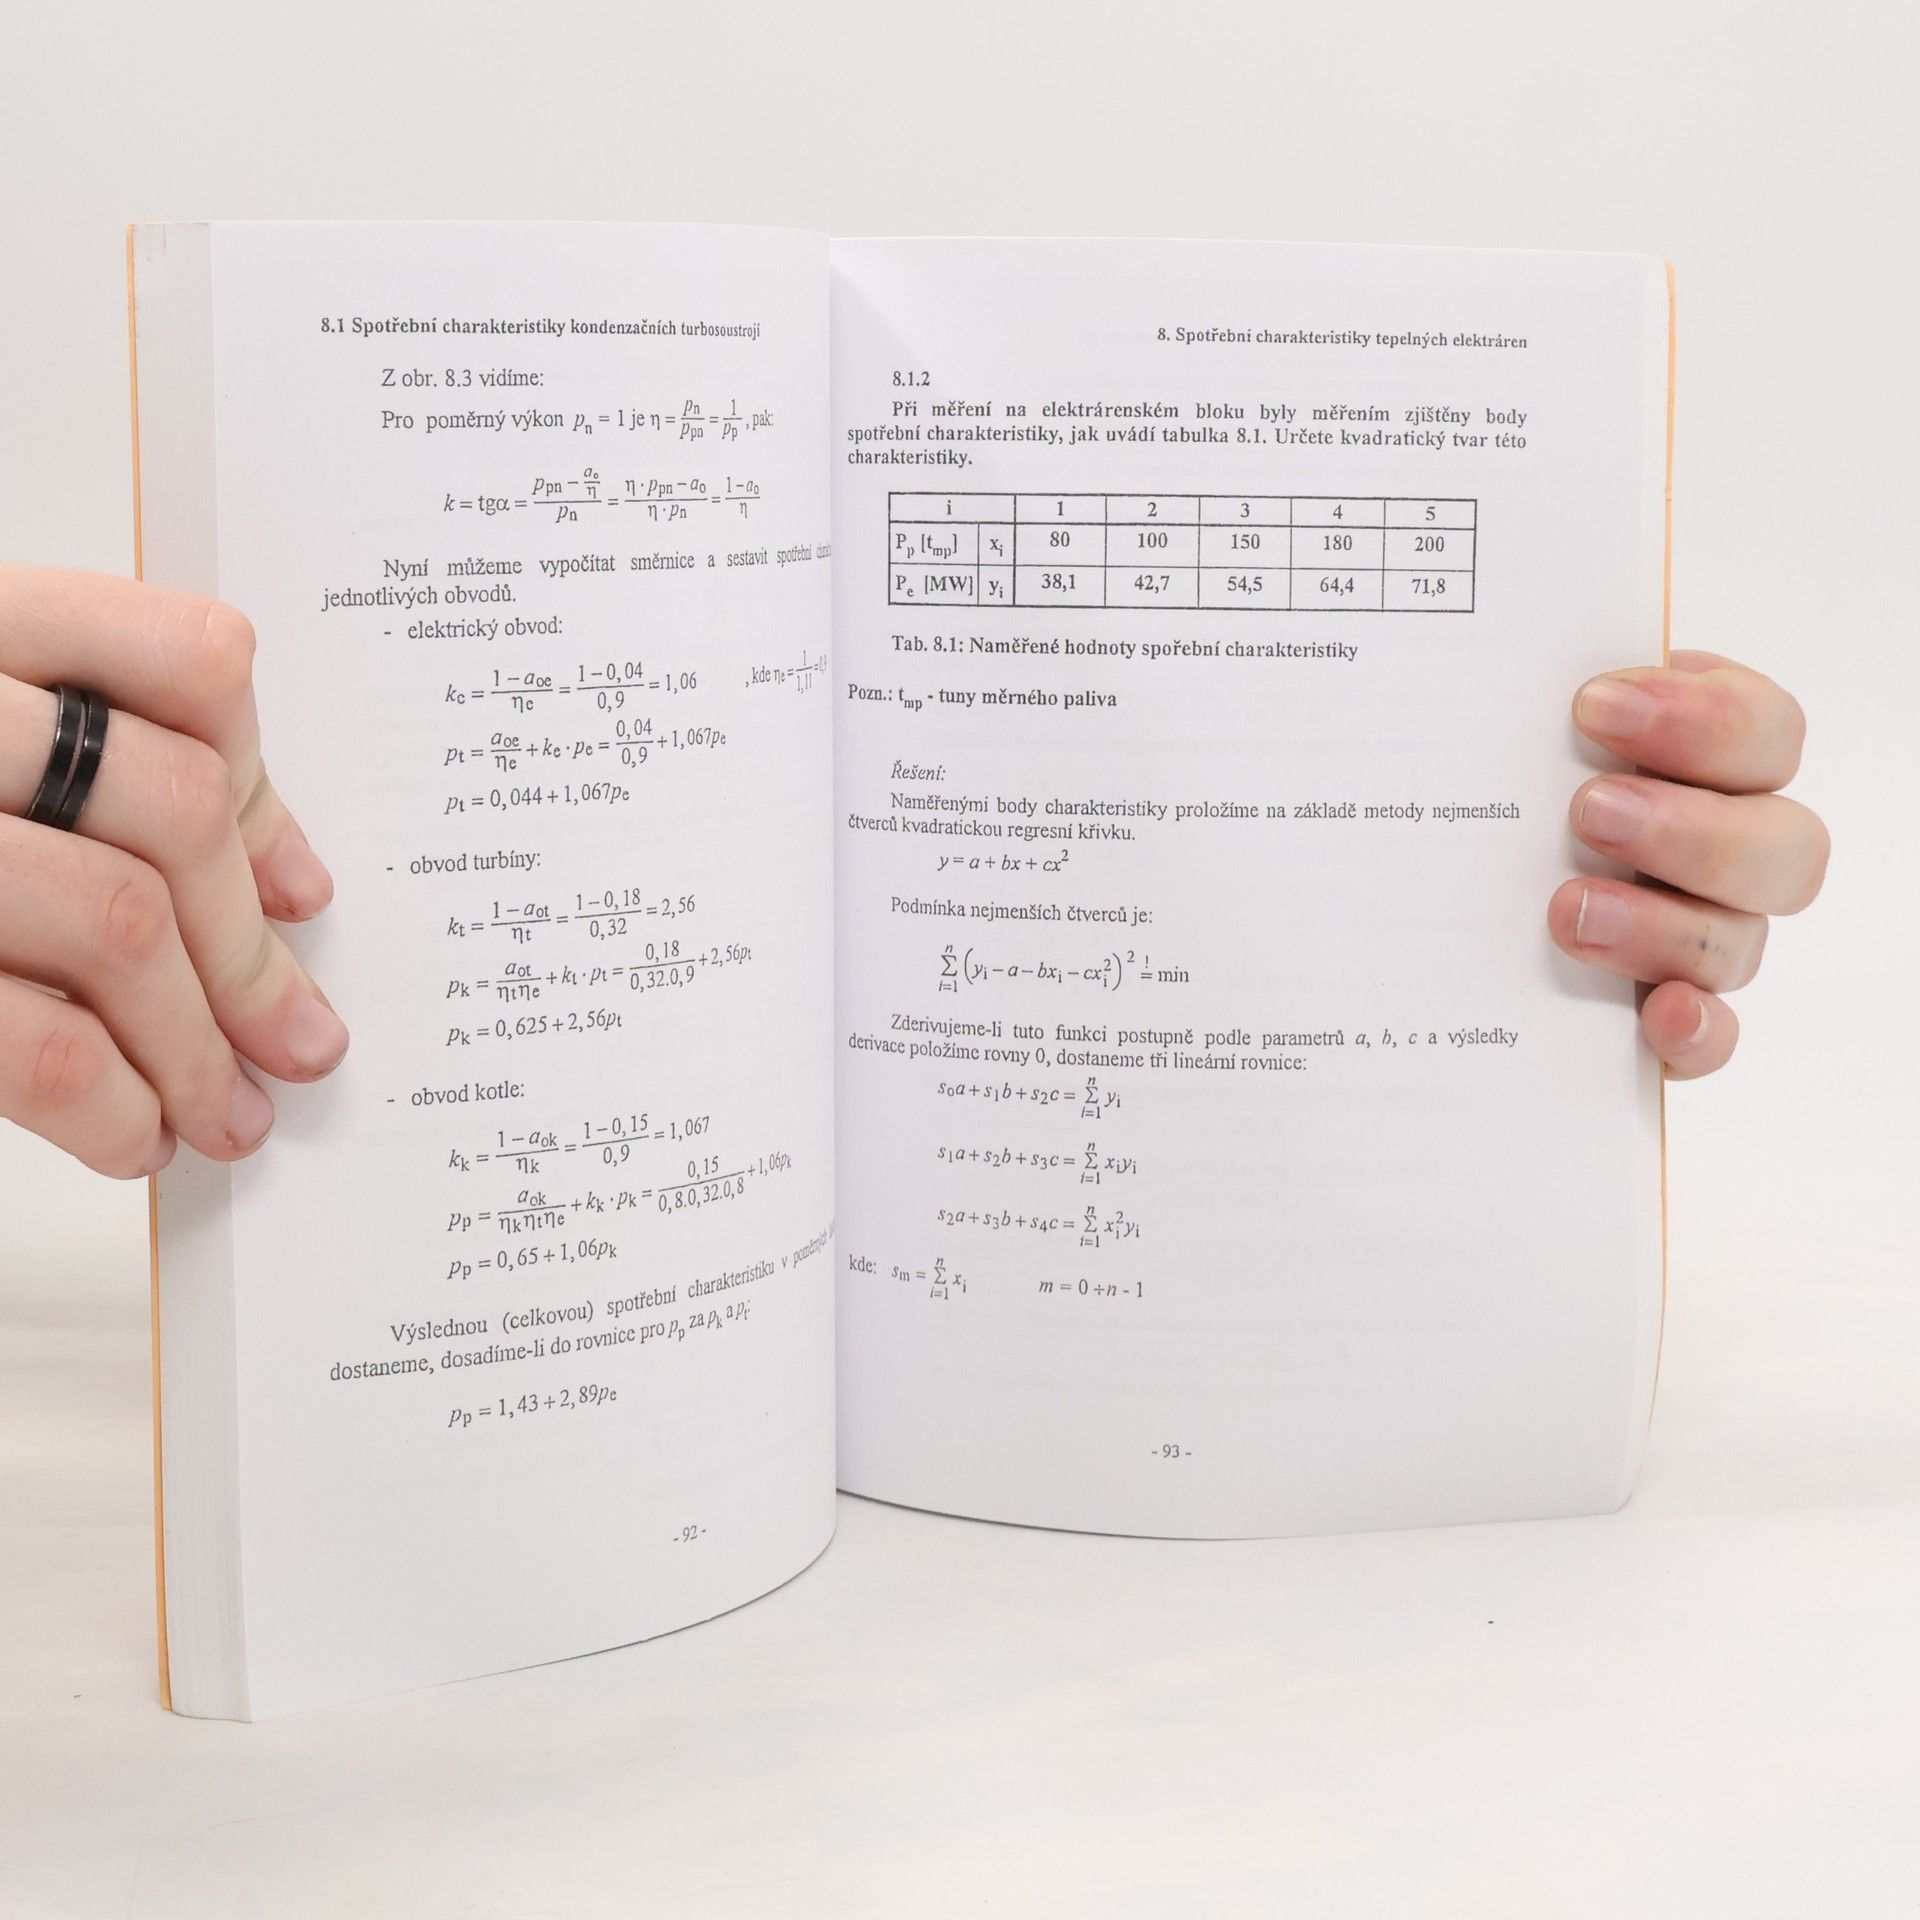 8.1 Spotřební charakteristiky kondenzačních turbosoustrojí
Z obr. 8.3 vidíme:
Pro poměrný výkon p_n = 1 je η = p_n/p_pn = 1/p_p , pak:
k = tgα = (p_pn − a_o/η)/p_n = (η · p_pn − a_o)/(η · p_n) = (1 − a_o)/η
Nyní můžeme vypočítat směrnice a sestavit spotřební
jednotlivých obvodů.
- elektrický obvod:
k_e = (1 − a_oe)/η_e = (1 − 0,04)/0,9 = 1,06 , kde η_e = 1/1,11 =
p_t = a_oe/η_e + k_e · p_e = 0,04/0,9 + 1,067p_e
p_t = 0,044 + 1,067p_e
- obvod turbíny:
k_t = (1 − a_ot)/η_t = (1 − 0,18)/0,32 = 2,56
p_k = a_ot/(η_t η_e) + k_t · p_t = 0,18/(0,32.0,9) + 2,56p_t
p_k = 0,625 + 2,56p_t
- obvod kotle:
k_k = (1 − a_ok)/η_k = (1 − 0,15)/0,9 = 1,067
p_p = a_ok/(η_k η_t η_e) + k_k · p_k = 0,15/(0,8.0,32.0,8) + 1,06p_k
p_p = 0,65 + 1,06p_k
Výslednou (celkovou) spotřební charakteristiku v poměrných
dostaneme, dosadíme-li do rovnice pro p_p za p_k a p_t:
p_p = 1,43 + 2,89p_e
- 92 -
8. Spotřební charakteristiky tepelných elektráren
8.1.2
Při měření na elektrárenském bloku byly měřením zjištěny body
spotřební charakteristiky, jak uvádí tabulka 8.1. Určete kvadratický tvar této
charakteristiky.
i 1 2 3 4 5
P_p [t_mp] x_i 80 100 150 180 200
P_e [MW] y_i 38,1 42,7 54,5 64,4 71,8
Tab. 8.1: Naměřené hodnoty spořební charakteristiky
Pozn.: t_mp - tuny měrného paliva
Řešení:
Naměřenými body charakteristiky proložíme na základě metody nejmenších
čtverců kvadratickou regresní křivku.
y = a + bx + cx²
Podmínka nejmenších čtverců je:
n Σ i=1 (y_i − a − bx_i − cx_i²)² =! min
Zderivujeme-li tuto funkci postupně podle parametrů a, b, c a výsledky
derivace položíme rovny 0, dostaneme tři lineární rovnice:
s_0a + s_1b + s_2c = n Σ i=1 y_i
s_1a + s_2b + s_3c = n Σ i=1 x_iy_i
s_2a + s_3b + s_4c = n Σ i=1 x_i²y_i
kde: s_m = n Σ i=1 x_i m = 0 ÷ n - 1
- 93 -